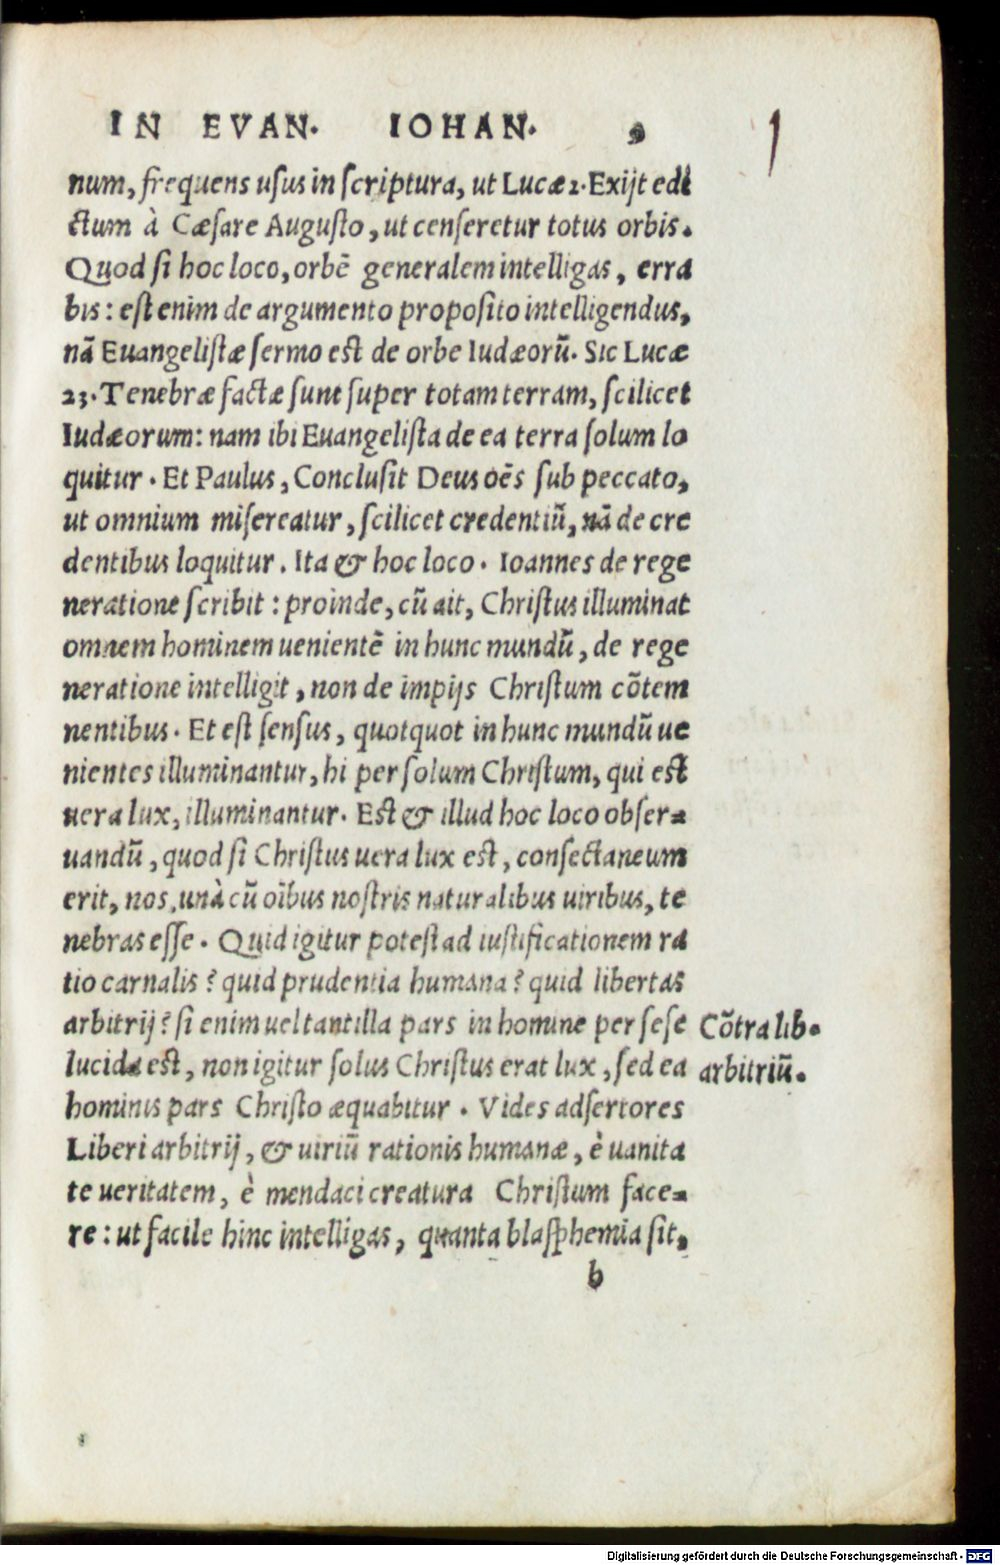 IN EVAN. IOHAN. 9
num, frequens usus in scriptura, ut Lucæ 2. Exijt edi
ctum à Cæsare Augusto, ut censeretur totus orbis.
Quod si hoc loco, orbē generalem intelligas, erra
bis: est enim de argumento proposito intelligendus,
nā Euangelistæ sermo est de orbe Iudæorū. Sic Lucæ
23. Tenebræ factæ sunt super totam terram, scilicet
Iudæorum: nam ibi Euangelista de ea terra solum lo
quitur. Et Paulus, Conclusit Deus oēs sub peccato,
ut omnium misereatur, scilicet credentiū, nā de cre
dentibus loquitur. Ita & hoc loco. Ioannes de rege
neratione scribit: proinde, cū ait, Christus illuminat
omnem hominem uenientē in hunc mundū, de rege
neratione intelligit, non de impijs Christum cōtem
nentibus. Et est sensus, quotquot in hunc mundū ue
nientes illuminantur, hi per solum Christum, qui est
uera lux, illuminantur. Est & illud hoc loco obser-
uandū, quod si Christus uera lux est, consectaneum
erit, nos, unà cū oībus nostris naturalibus uiribus, te
nebras esse. Quid igitur potest ad iustificationem ra
tio carnalis? quid prudentia humana? quid libertas
arbitrij? si enim uel tantilla pars in homine per sese
Cōtra lib.
lucida est, non igitur solus Christus erat lux, sed ea
arbitriū.
hominis pars Christo æquabitur. Vides adsertores
Liberi arbitrij, & uiriū rationis humanæ, è uanita
te ueritatem, è mendaci creatura Christum face-
re: ut facile hinc intelligas, quanta blasphemia sit,
b
Digitalisierung gefördert durch die Deutsche Forschungsgemeinschaft - DFG